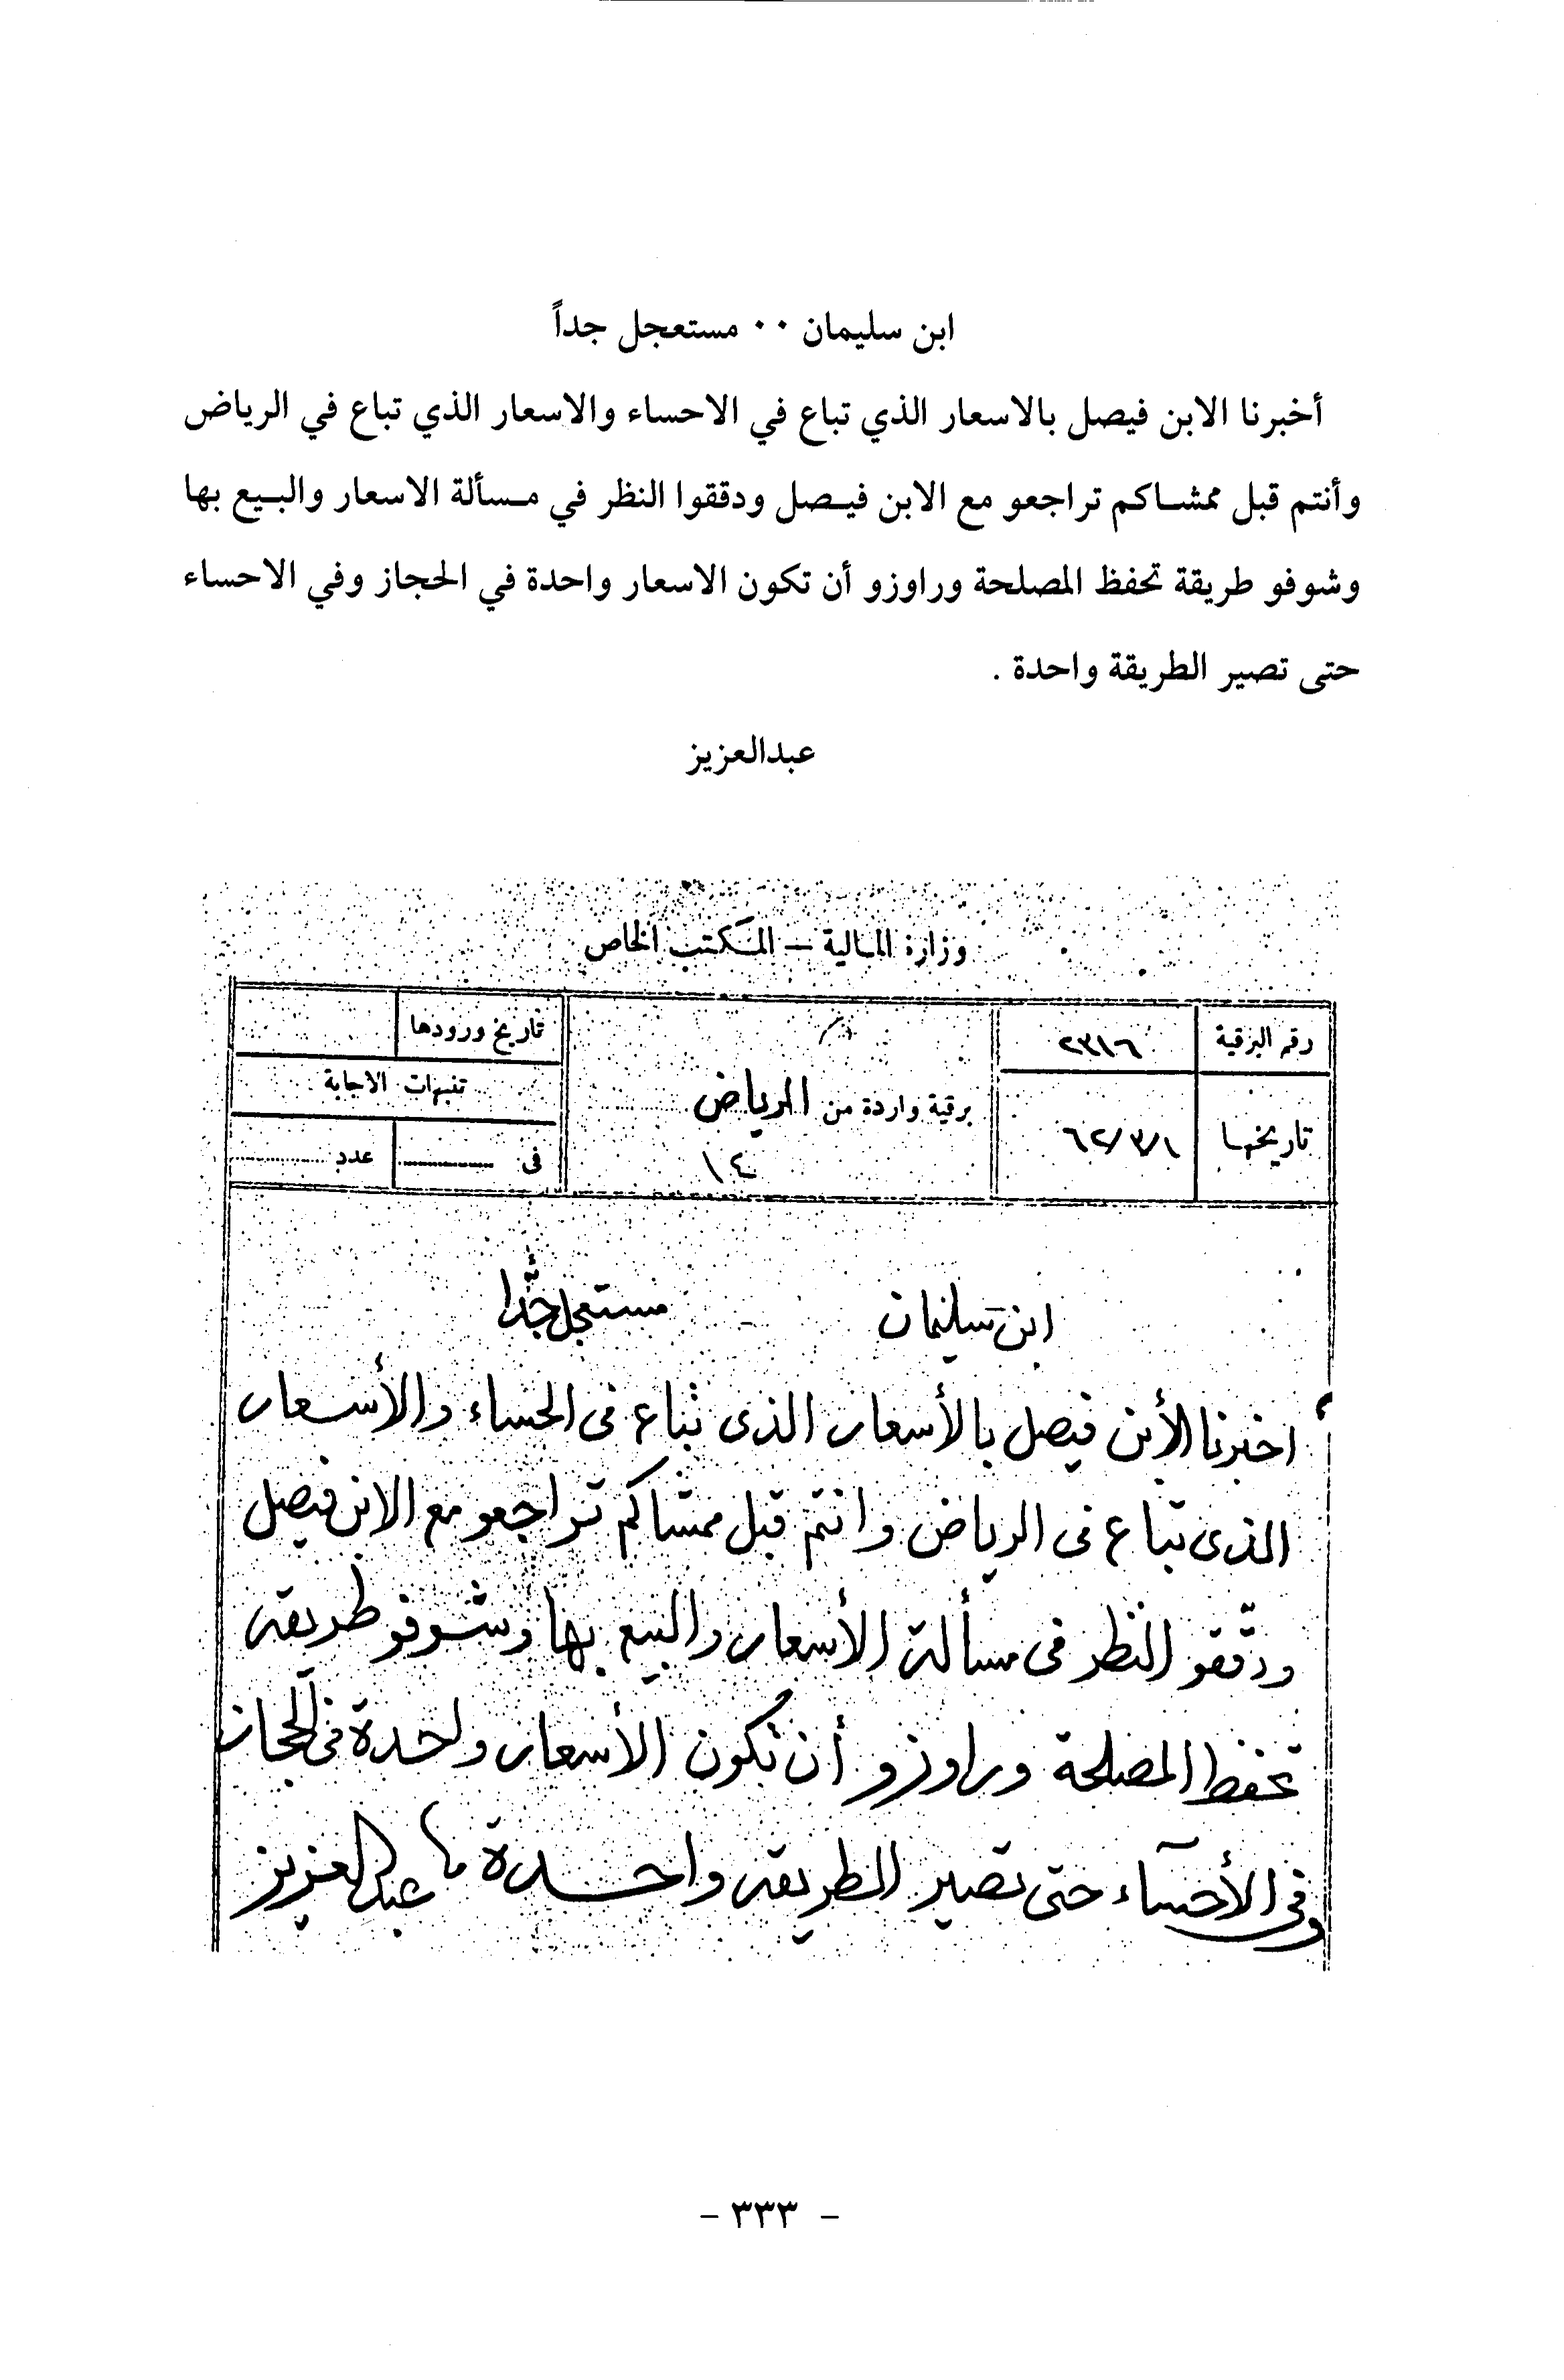 ابن سليمان ٠٠ مستعجل جداً
أخبرنا الابن فيصل بالاسعار الذي تباع في الاحساء والاسعار الذي تباع في الرياض
وأنتم قبل ممشاكم تراجعو مع الابن فيصل ودققوا النظر في مسألة الاسعار والبيع بها
وشوفو طريقة تحفظ المصلحة وراوزو أن تكون الاسعار واحدة في الحجاز وفي الاحساء
حتى تصير الطريقة واحدة .
عبدالعزيز
وزارة المالية – المكتب الخاص
رقم البرقية ٢٣١٦
تاريخها ٦٢/٣/١
برقية واردة من الرياض
١٤
تاريخ ورودها
تنبيهات الاجابة
في عدد
ابن سليمان مستعجل جدًّا
أخبرنا الأبن فيصل بالأسعار الذي تباع في الحساء والأسعار
الذي تباع في الرياض وانتم قبل ممشاكم تراجعو مع الابن فيصل
ودقّقو النظر في مسألة الأسعار والبيع بها وشوفو طريقه
تحفظ المصلحة وراوزو أن تكون الأسعار واحدة في الحجاز
وفي الأحسآء حتى تصير الطريقه واحدة عبدالعزيز
- ٣٣٣ -